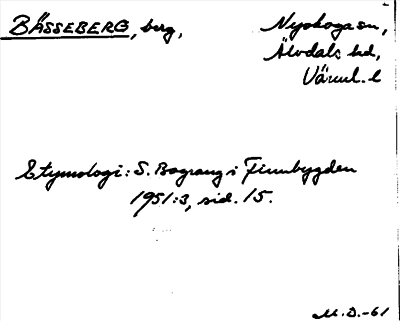 BÄSSEBERG, berg,
Nyskoga sn,
Älvdals hd,
Värml. l
Etymologi: S. Bograng i Finnbygden
1951:3, sid. 15.
M.D.-61